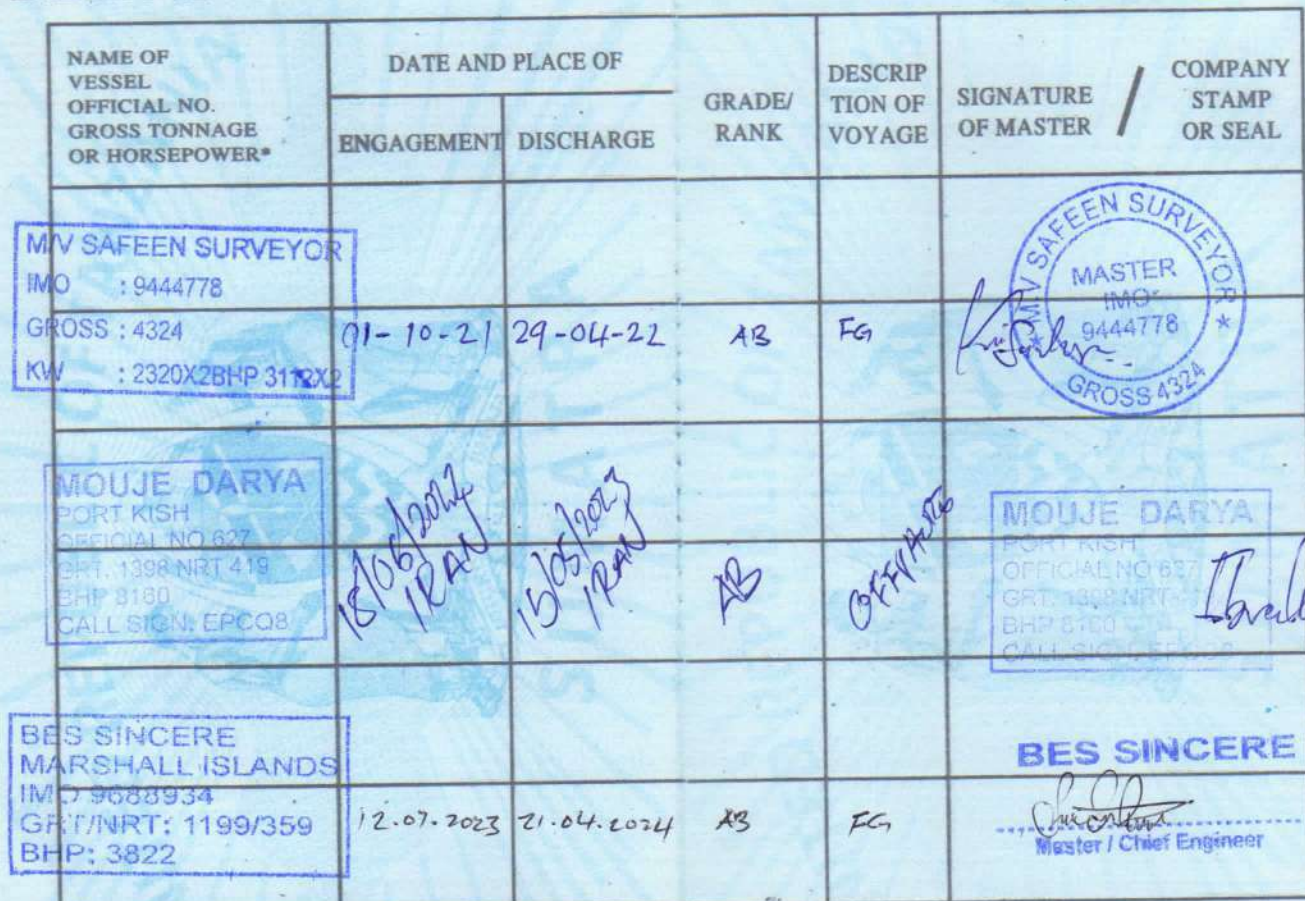 NAME OF
VESSEL
OFFICIAL NO.
GROSS TONNAGE
OR HORSEPOWER*
DATE AND PLACE OF
ENGAGEMENT
DISCHARGE
GRADE/
RANK
DESCRIP
TION OF
VOYAGE
SIGNATURE
OF MASTER
/
COMPANY
STAMP
OR SEAL
M/V SAFEEN SURVEYOR
IMO : 9444778
GROSS : 4324
KW : 2320X2BHP 3112X2
01-10-21
29-04-22
AB
FG
* M/V SAFEEN SURVEYOR *
MASTER
IMO
9444778
GROSS 4324
MOUJE DARYA
PORT KISH
OFFICIAL NO 627
GRT. 1398 NRT 419
BHP 8160
CALL SIGN: EPCQ8
18/06/2022
IRAN
15/05/2023
IRAN
AB
MOUJE DARYA
PORT KISH
OFFICIAL NO 627
GRT. 1398 NRT
BHP 8160
CALL SIGN: EPCQ8
BES SINCERE
MARSHALL ISLANDS
IMO 9688934
GRT/NRT: 1199/359
BHP: 3822
12.07.2023
21.04.2024
AB
FG
BES SINCERE
Master / Chief Engineer